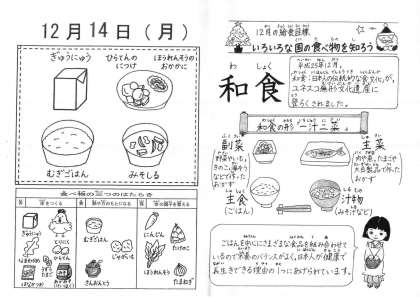 12月14日(月)
ぎゅうにゅう
ひらてんの
につけ
ほうれんそうの
おかかに
むぎごはん
みそしる
食べ物の三つのはたらき
体をつくる
熱や力のもとになる
体の調子を整える
ぎゅうにゅう
むぎごはん
にんじん
たけのこ
とうふ
じゃがいも
さんおんとう
ほうれんそう
たまねぎ
12月の給食目標
いろいろな国の食べ物を知ろう
わ しょく
和食
平成25年12月、
「和食;日本人の伝統的な食文化」が、
ユネスコ無形文化遺産に
登ろくされました。
和食の形「一汁二菜」
副菜
野菜やいも、
きのこ、海そう
などで作る
おかず
主菜
肉や魚、たまごや
大豆製品で作った
おかず
主食
(ごはん)
汁物
(みそ汁など)
ごはんを中心にさまざまな食品を組み合わせて
いるので栄養のバランスがよく、日本人が健康で
長生きできる理由の1つにあげられています。